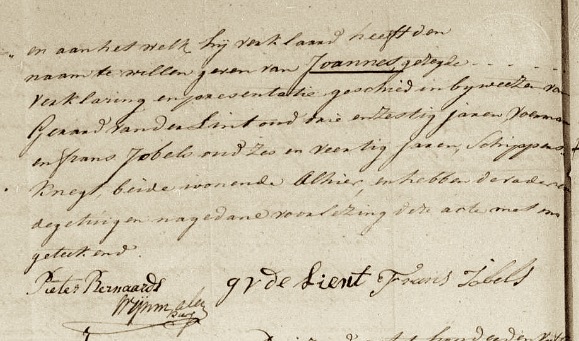 en aan het welk hij verklaard heeft den
naam te willen geven van Joannes, gezegde
verklaring en presentatie geschied in bijweezen van
Gerard van der Lint oud drie en zestig jaren, voerman
en frans Jobels oud zes en veertig jaren, Schippers
knegt, beide wonende Alhier, en hebben de vader en
de getuigen na gedane voorlezing deze acte met ons
geteekend.
Pieter Bernaards gvde Lient Frans Jobels